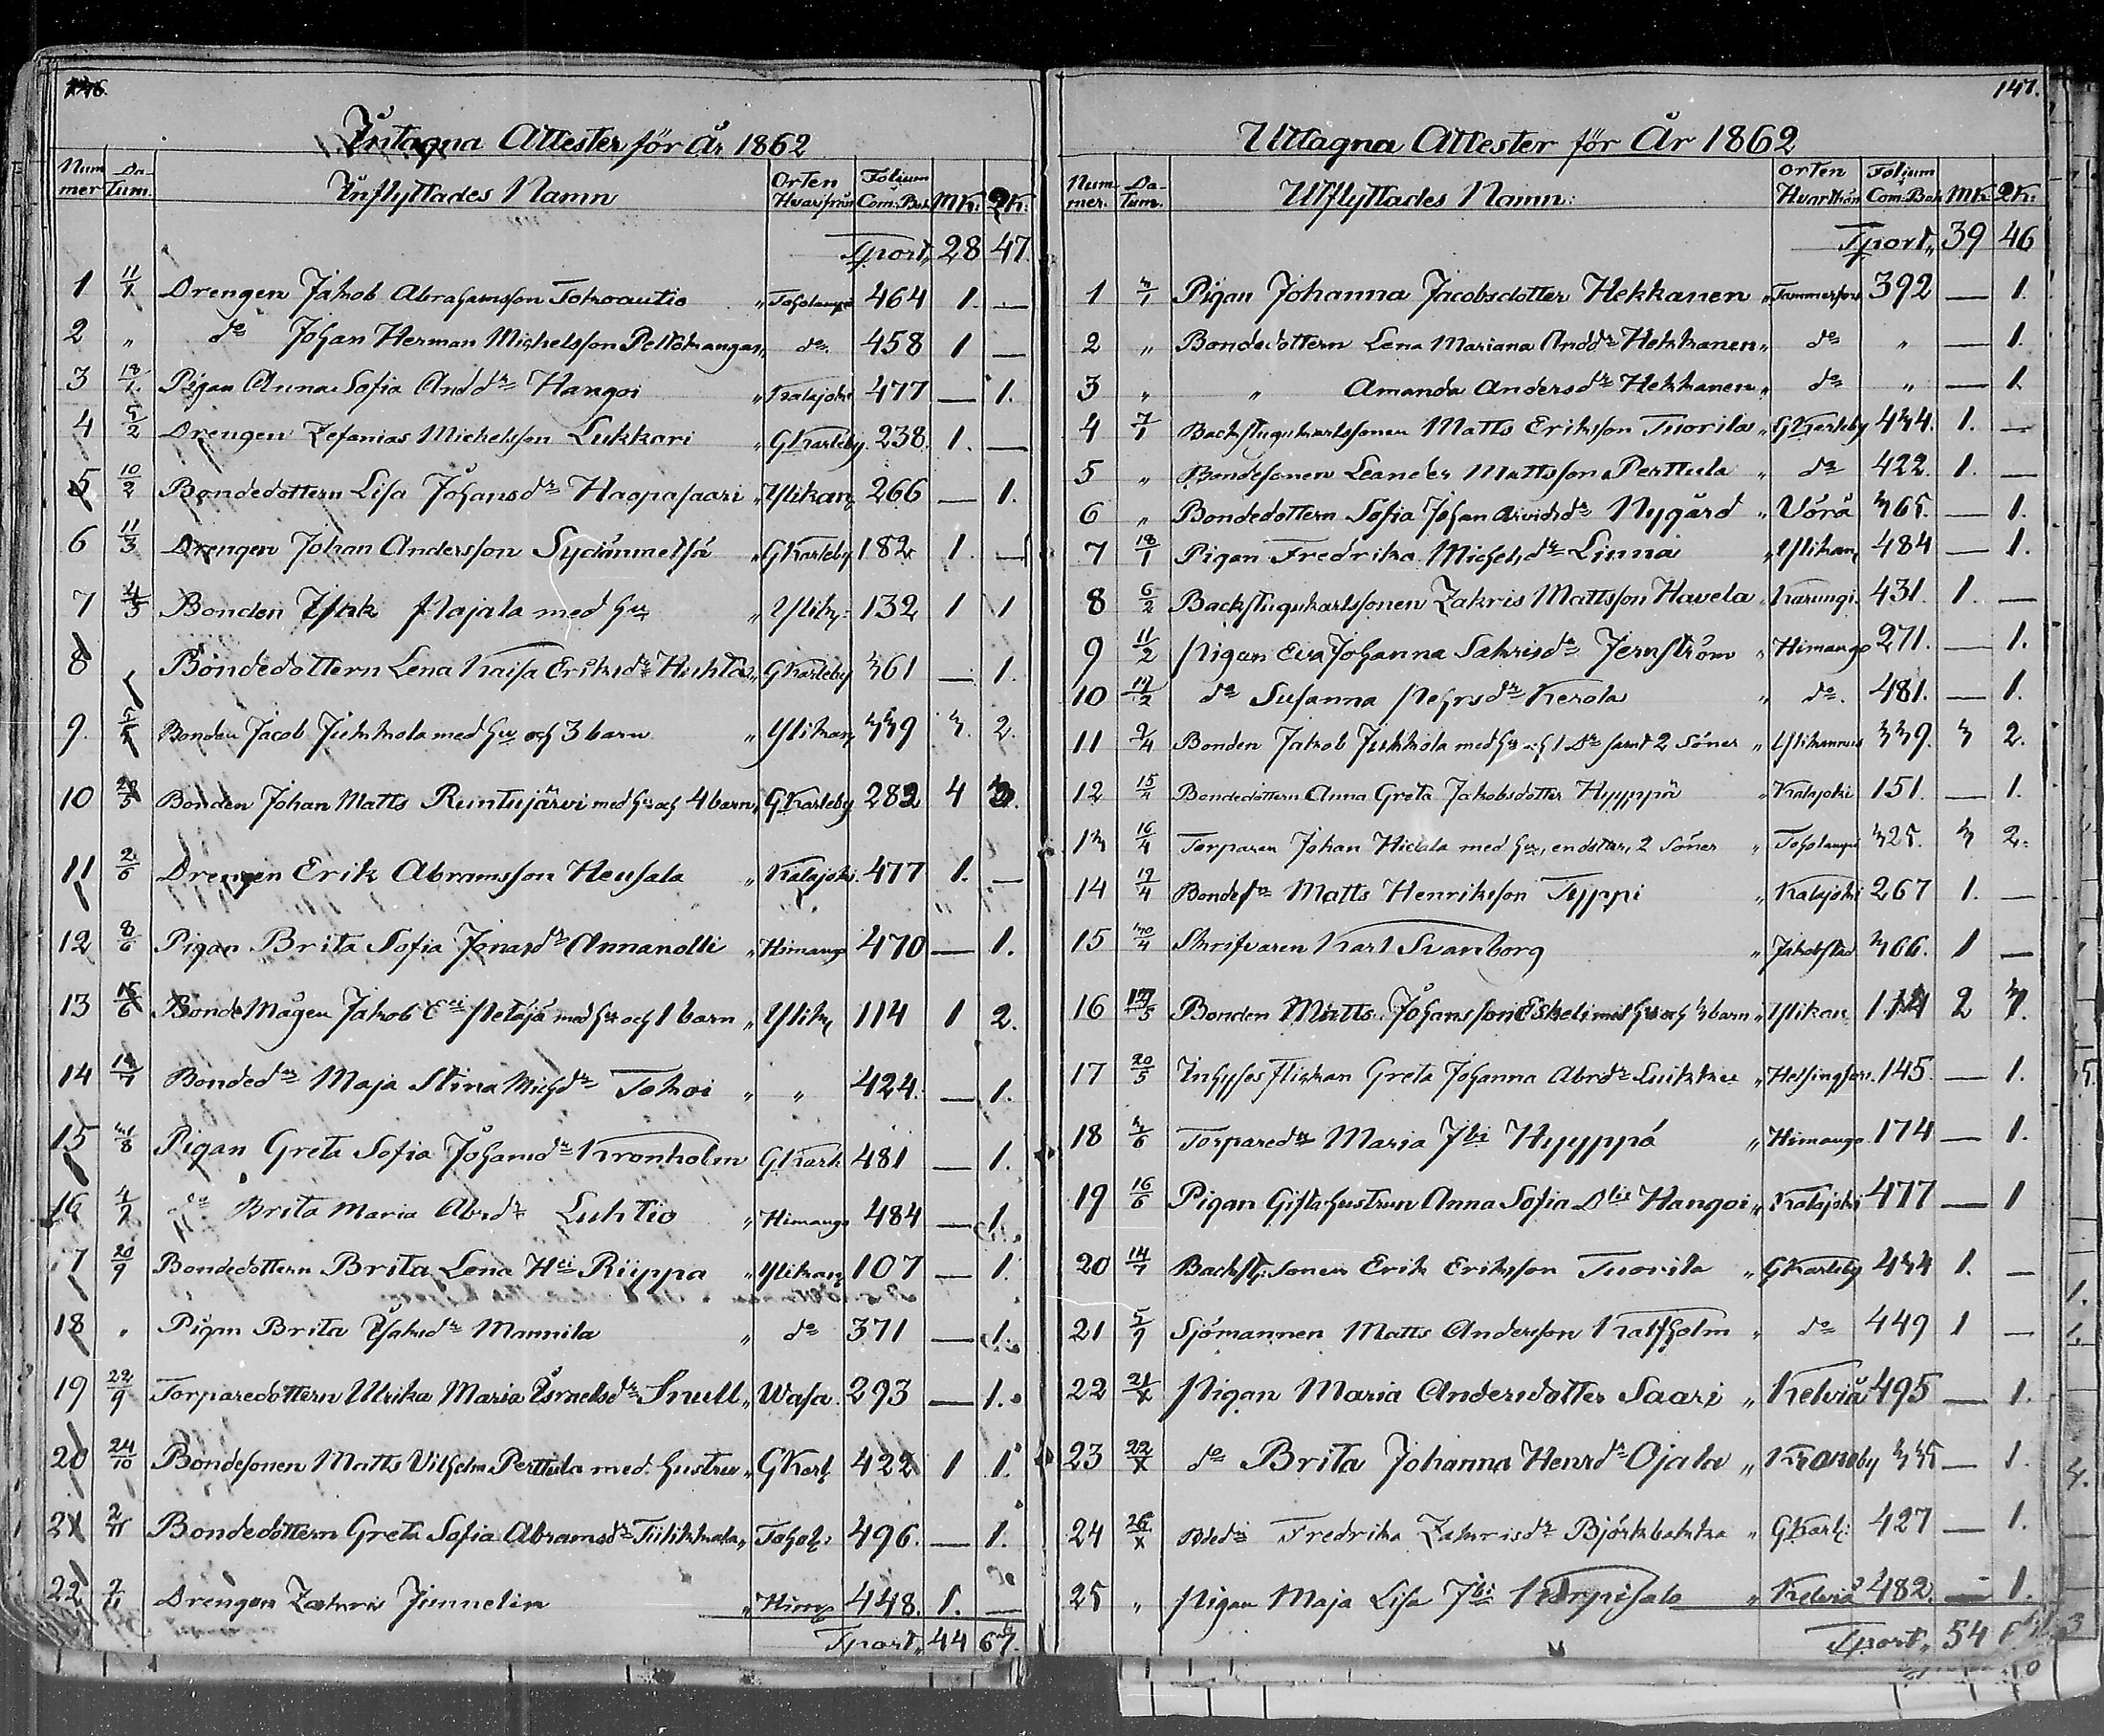 146.
Intagna Attester för År 1862
Num mer | Da- tum. | Inflyttades Namn | Orten Hvarifrån | Folium Com: Bok | MK: | QK:
Tport,, 28 47.
1 11/1 Drengen Jakob Abrahamsson Tokoautio „ Toholampi 464 1. —
2 „ do Johan Herman Michelsson Peltokangas „ do 458 1 —
3 18/1 Pigan Anna Sofia Anddr Hangoi „ Kalajoki 477 — 1.
4 5/2 Drengen Zefanias Michelsson Lukkari „ GKarleby 238. 1. —
5 10/2 Bondedottern Lisa Johansdr Haapasaari „ Ylikan 266 — 1.
6 11/3 Drengen Johan Andersson Sydänmetsä „ GKarleby 182 1. —
7 Bonden Isak Majala med hu „ Ylik: 132 1 1
8 Bondedottern Lena Kaisa Eriksdr Huhta „ GKarleby 361 — 1.
9. Bonden Jacob Jukkola med hu och 3 barn „ Ylikan 339 3. 2.
10 Bonden Johan Matts Runtujärvi med hu och 4 barn „ GKarleby 282 4 3.
11 2/6 Drengen Erik Abramsson Heusala „ Kalajoki. 477 1. —
12 8/6 Pigan Brita Sofia Jonasdr Annanolli „ Himango 470 — 1.
13 15/6 BondeMågen Jakob Eri Petäjä med hu och 1 barn „ Ylik 114 1 2.
14 Bondedr Maja Stina Michdr Tokoi „ „ 424. — 1.
15 31/8 Pigan Greta Sofia Johansdr Kronholm GKarl 481 — 1.
16 do Brita Maria Abrdr Luhtio „ Himango 484 — 1.
17 20/9 Bondedottern Brita Lena Hri Riippa „ Ylikan 107 — 1.
18 „ Pigan Brita Isaksdr Mannila „ do 371 — 1.
19 22/9 Torparedottern Ulrika Maria Israelsdr Snull „ Wasa. 293 — 1.
20 24/10 Bondesonen Matts Vilhelm Perttula med hustru „ GKarl 422 1 1.
21 2/11 Bondedottern Greta Sofia Abramsdr Tiilikkala „ Tohol: 496. — 1.
22 Drengen Zakris Jinnelin „ Him 448. 1. —
Tport,, 44 67.
147.
Uttagna Attester för År 1862
Num- mer. | Da- tum. | Utflyttades Namn: | Orten Hvarthän | Folium Com: Bok | MK: | QK:
Tport,, 39 46
1 3/1 Pigan Johanna Jacobsdotter Hekkanen „ Tammerfors 392 — 1.
2 „ Bondedottern Lena Mariana Anddr Hekkanen „ do „ — 1.
3 „ „ Amanda Andersdr Hekkanen „ do „ — 1
4 7/1 Backstugukarlssonen Matts Eriksson Tuorila „ GKarleby 434. 1. —
5 „ Bondesonen Leander Mattsson Perttula „ do 422. 1. —
6 „ Bondedottern Sofia Johan Arvidsdr Nygård „ Vörå 365. — 1.
7 18/1 Pigan Fredrika Michelsdr Linna „ Ylikan 484 — 1.
8 6/2 Backstugukarlssonen Zakris Mattsson Havela „ Karungi. 431. 1. —
9 11/2 Pigan Eva Johanna Sakrisdr Jernström „ Himango 271. — 1.
10 do Susanna Pehrsdr Kerola „ do. 481. — 1.
11 9/4 Bonden Jakob Jukkola med hu och 1 Dr samt 2 Söner „ Ylikannus 339. 3 2.
12 15/4 Bondedottern Anna Greta Jakobsdotter Hyyppä „ Kalajoki 151. — 1.
13 16/4 Torparen Johan Hietala med hu, en dotter, 2 Söner „ Toholampi 325. 3 2.
14 19/4 Bondesn Matts Henriksson Typpi „ Kalajoki 267 1. —
15 30/4 Skrifvaren Karl Svanborg „ Jakobstad 366. 1 —
16 Bonden Matts Johansson Eskeli med hu och 3 barn „ Ylikan 114 2 3.
17 20/5 Inhyses flickan Greta Johanna Abrdr Luikku „ Helsingfors. 145. — 1.
18 3/6 Torparedr Maria Jbi Hyyppä „ Himango 174 — 1.
19 16/6 Pigan Gifta hustrun Anna Sofia Hangoi „ Kalajoki 477 — 1
20 14/7 Backst: Sonen Erik Eriksson Tuorila „ GKarleby 434 1. —
21 5/9 Sjömannen Matts Andersson Kalfholm „ do 449 1 —
22 21/X Pigan Maria Andersdotter Saari „ Kelviå 495 — 1.
23 22/X do Brita Johanna Henrdr Ojala „ Kroneby 335 — 1.
24 26/X Bdedr Fredrika Zakrisdr Björkbakka „ GKarl: 427 — 1.
25 „ Pigan Maja Lisa Jbi Korpisalo „ Kelviå 482. — 1.
Tport,, 54